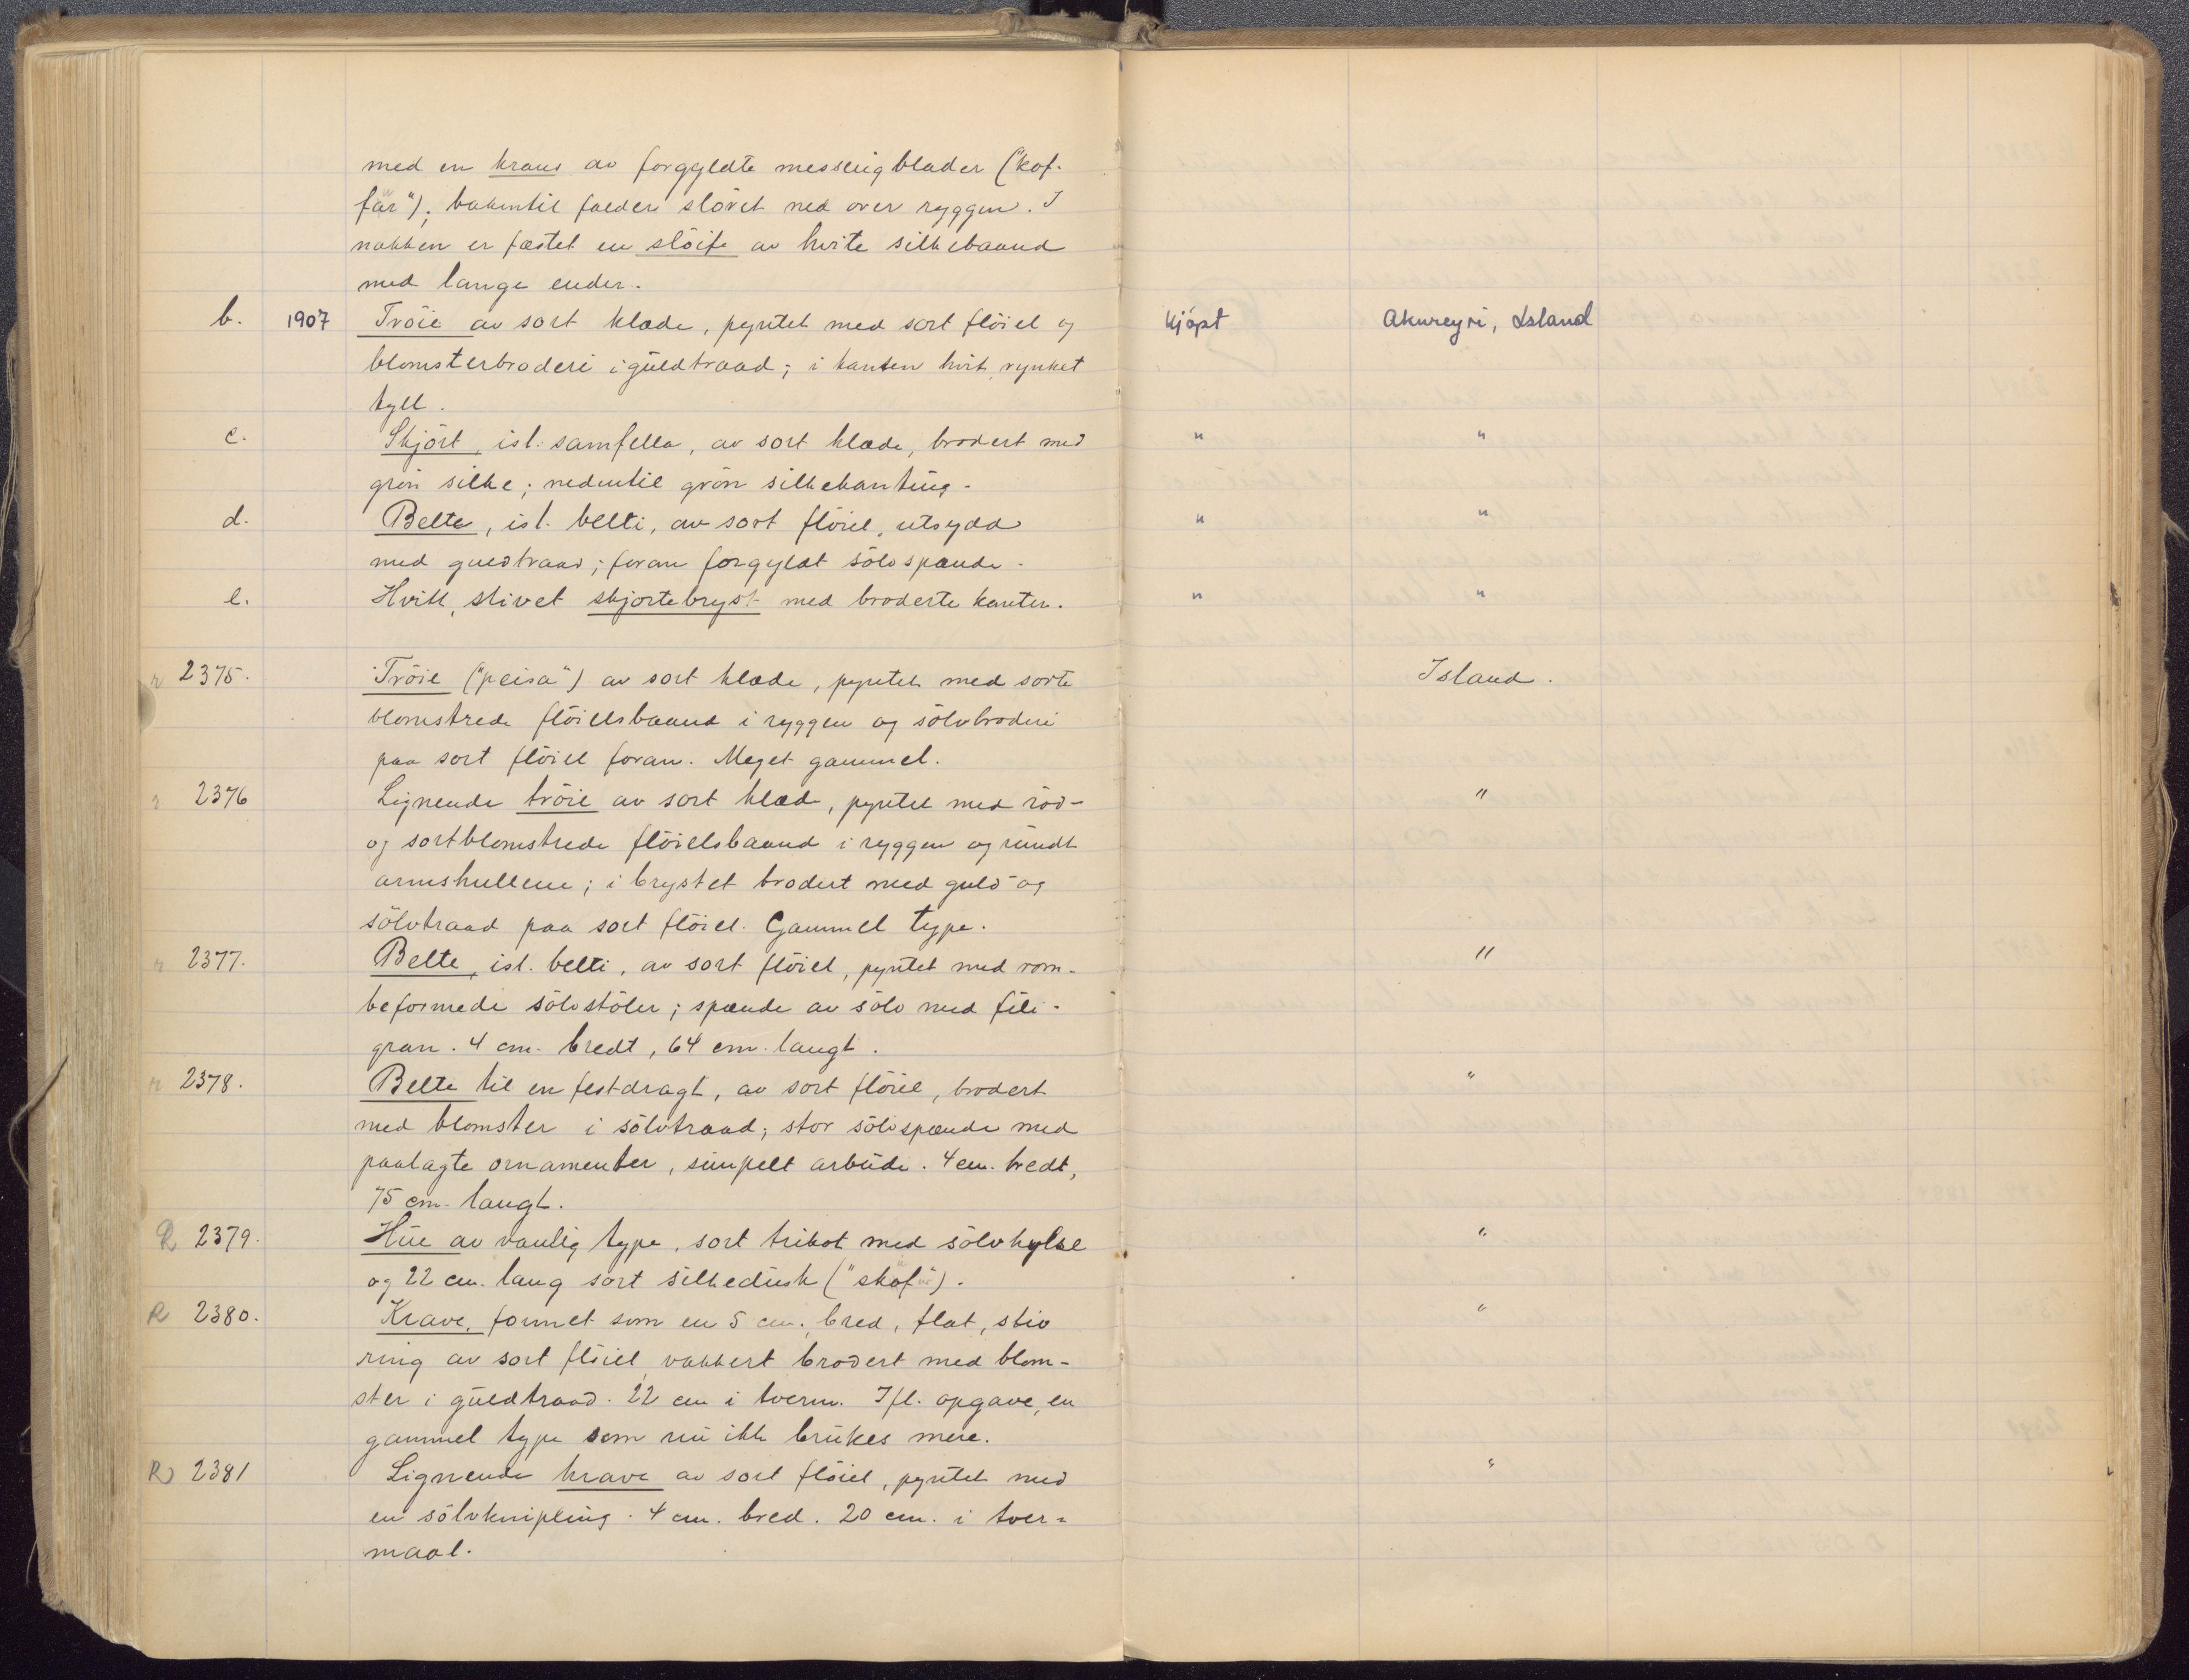 med en krans av forgyldte messingblader ("kof-
får"); bakentil falder slöret ned over ryggen. I
nakken er fæstet en slöife av hvite silkebaand
med lange ender.
b. 1907 Tröie av sort klæde, pyntet med sort flöiel og kjöpt Akureyri, Island
blomsterbroderi i guldtraad; i kanten hvit, rynket
tyll.
c. Skjört, isl. samfella, av sort klæde, brodert med " "
grön silke; nedentil grön silkekanting.
d. Belte, isl. belti, av sort flöiel, utsydd " "
med guldtraad; foran forgyldt sölvspænde.
e. Hvitt, stivet skjortebryst med broderte kanter. " "
r 2375. Tröie ("peisa") av sort klæde, pyntet med sorte Island.
blomstrede flöielsbaand i ryggen og sölvbroderi
paa sort flöiel foran. Meget gammel.
r 2376 Lignende tröie av sort klæde, pyntet med röd- "
og sortblomstrede flöielsbaand i ryggen og rundt
armshullene; i brystet brodert med guld- og
sölvtraad paa sort flöiel. Gammel type.
r 2377. Belte, isl. belti, av sort flöiel, pyntet med rom- "
beformede sölvstöler; spænde av sölv med fili-
gran. 4 cm. bredt, 64 cm. langt.
r 2378. Belte til en festdragt, av sort flöiel, brodert "
med blomster i sölvtraad; stor sölvspænde med
paalagte ornamenter, simpelt arbeide. 4 cm. bredt,
75 cm. langt.
R 2379. Hue av vanlig type, sort trikot med sölvhylse "
og 22 cm. lang sort silkedusk ("skof").
R 2380. Krave, formet som en 5 cm. bred, flat, stiv "
ring av sort flöiel, vakkert brodert med blom-
ster i guldtraad. 22 cm i tverm. Ifl. opgave, en
gammel type som nu ikke brukes mere.
R 2381 Lignende krave av sort flöiel, pyntet med "
en sölvknipling. 4 cm. bred. 20 cm. i tver-
maal.